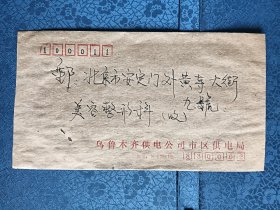 100011
邮:北京市安定门外黄寺大街
九号
美容整形科 (收)
乌鲁木齐供电公司市区供电局
830002